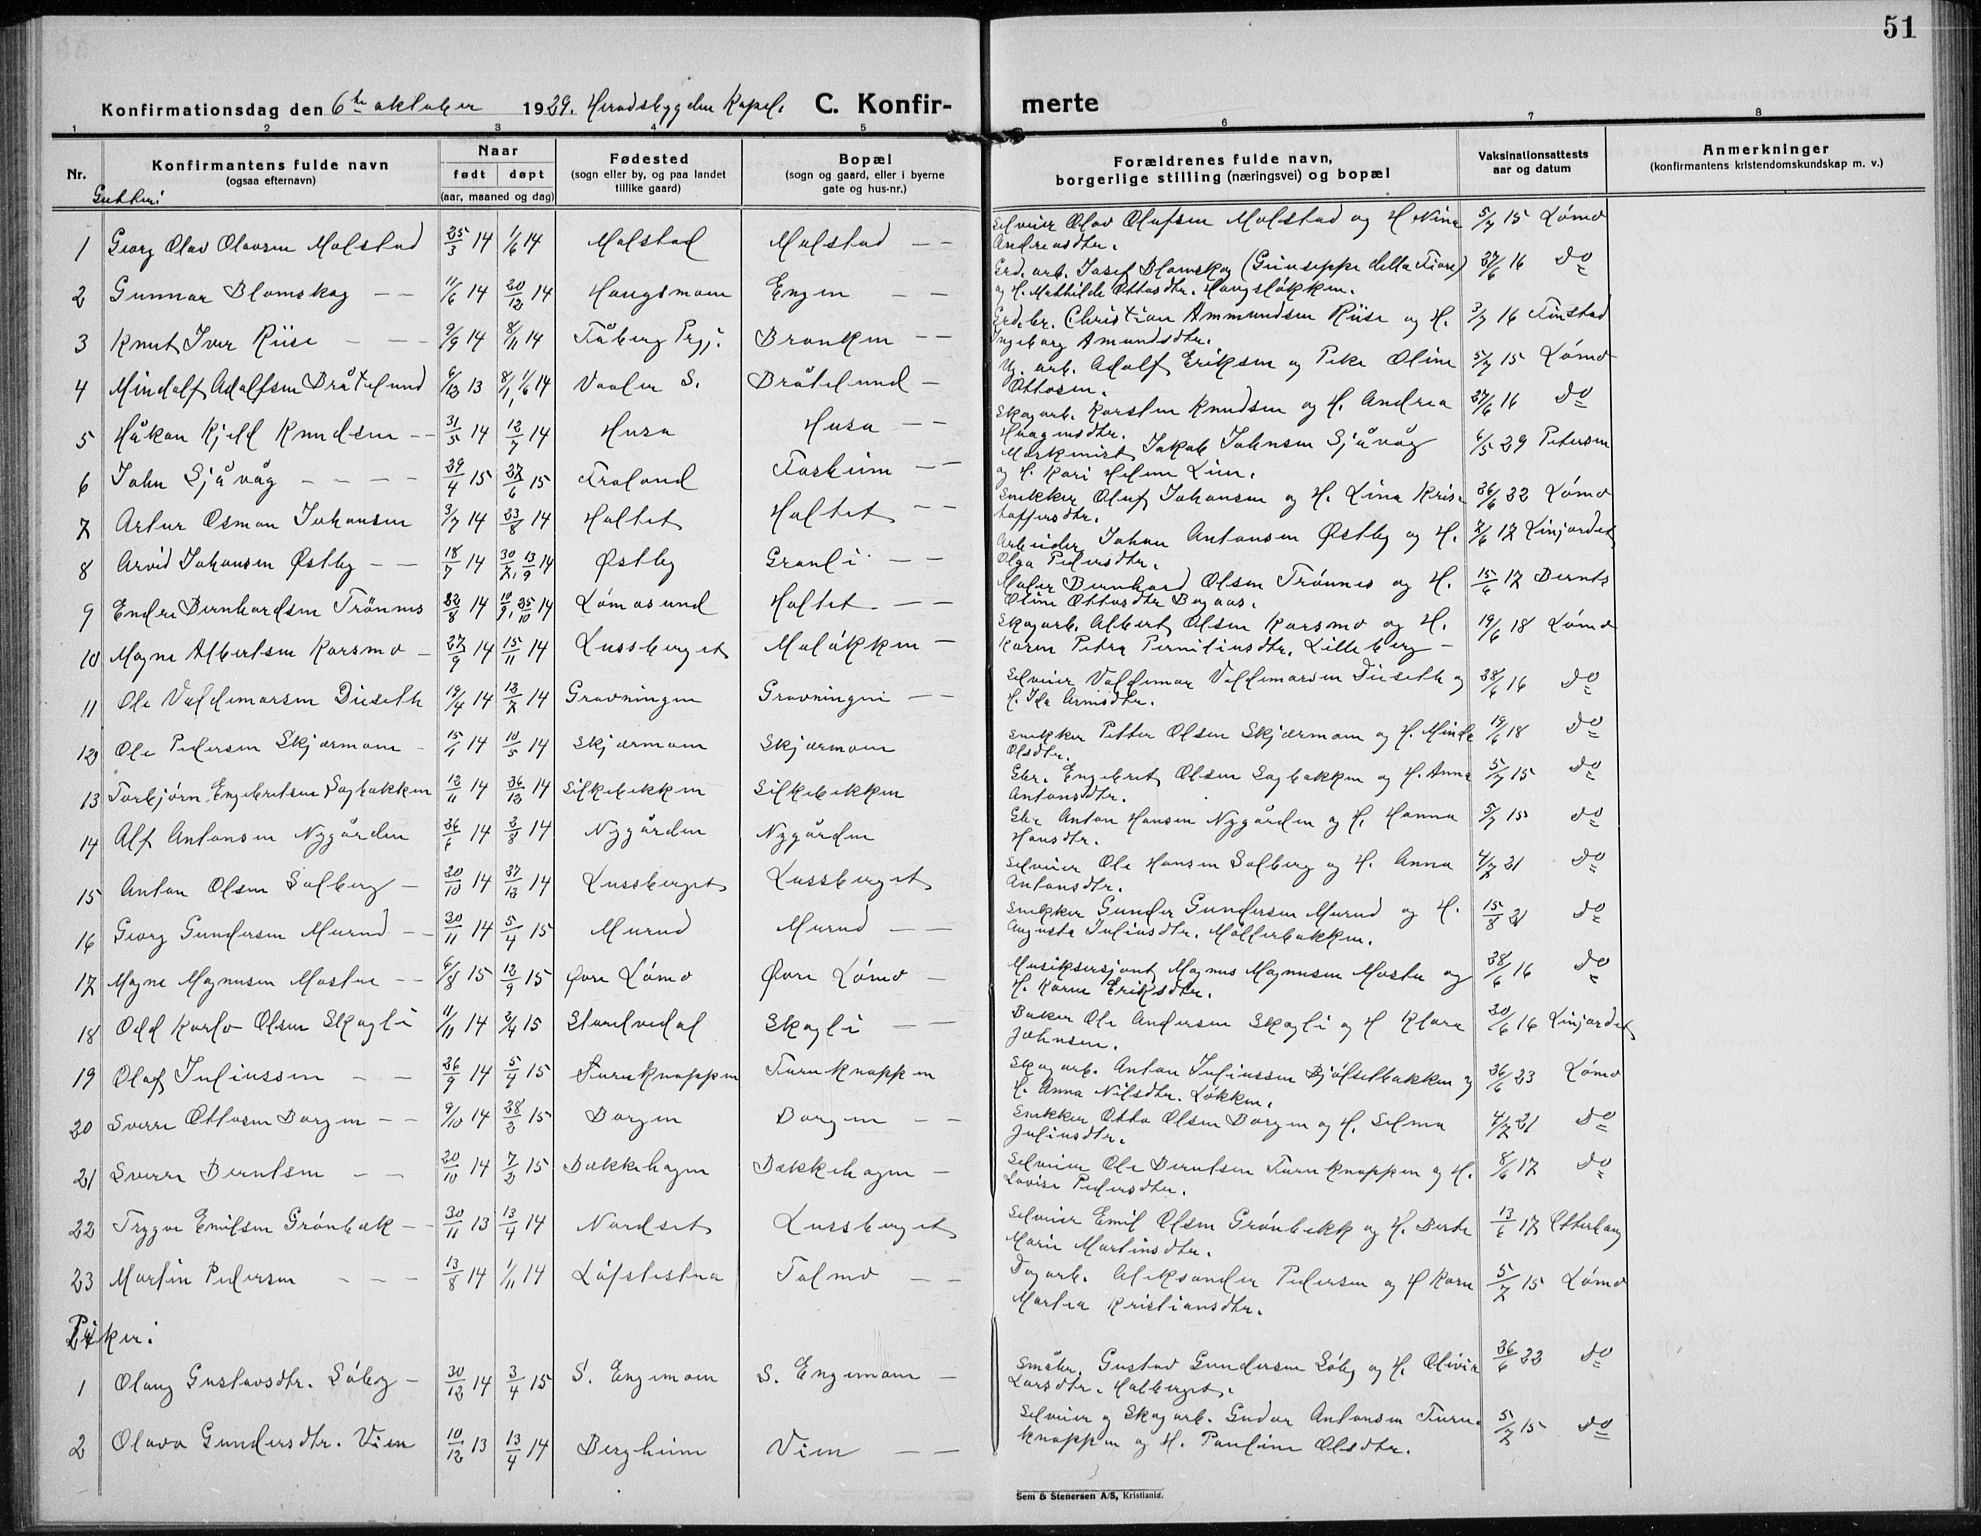 51
Konfirmationsdag den 6te oktober 1929. Heradsbygden Kapel. C. Konfir- merte
1 2 3 4 5 6 7 8
Nr. Konfirmantens fulde navn (ogsaa efternavn) Naar født døpt (aar, maaned og dag) Fødested (sogn eller by, og paa landet tillike gaard) Bopæl (sogn og gaard, eller i byerne gate og hus-nr.) Forældrenes fulde navn, borgerlige stilling (næringsvei) og bopæl Vaksinationsattests aar og datum Anmerkninger (konfirmantens kristendomskundskap m. v.)
Gutter:
1 Georg Olav Olavsen Molstad 25/3 14 1/6 14 Molstad Molstad — — Selveier Olav Olafsen Molstad og H. Nina 5/7 15 Lømo
Andreasdtr.
2 Gunnar Blomskog — — 11/6 14 20/12 14 Haugsmoen Engen — — Grd. arb. Josef Blomskog (Guiseppe della Fiore) 27/6 16 do
og H. Mathilde Ottosdtr. Haugsløkken.
3 Knut Iver Riise — — — 9/9 14 8/11 14 Fåberg Prgj. Bronken — — Grd. br. Christian Ammundsen Riise og H. 3/7 16 Finstad
Ingeborg Amundsdtr.
4 Mindolf Adolfsen Bråtelund 6/12 13 8/1, 1/6 14 Vaaler S. Bråtelund — Ug. arb. Adolf Eriksen og Pike Oline 5/7 15 Lømo
Ottosen.
5 Håkon Kjeld Knudsen — — 31/5 14 12/7 14 Husa Husa — — Skogarb. Karsten Knudsen og H. Andrea 27/6 16 do
Haagensdtr.
6 John Sjåvåg — — — — 29/4 15 27/6 15 Froland Fasheim — — Maskinist Jakob Johnsen Sjåvåg 6/5 29 Petersen
og H. Kari Helene Lien.
7 Artur Osman Johansen 3/7 14 23/8 14 Holtet Holtet — — Snekker Oluf Johansen og H. Lina Kris- 26/6 22 Lømo
toffersdtr.
8 Arvid Johansen Østby — — 18/7 14 30/7, 13/9 14 Østby Granli — — Arbeider Johan Antonsen Østby og H. 7/6 17 Linjordet
Olga Pedersdtr.
9 Endre Bernhardsen Trønnes 22/8 14 10/9, 25/10 14 Lømosund Holtet — — Maler Bernhard Olsen Trønnes og H. 15/6 17 Bernts
Oline Ottosdtr Begaas.
10 Magne Albertsen Karsmo — 27/9 14 15/11 14 Lussberget Moløkken — Skogarb. Albert Olsen Karsmo og H. 19/6 18 Lømo
Karen Petra Perniliusdtr. Lilleberg —
11 Ole Valdemarsen Diseth 19/4 14 12/7 14 Gravningen Gravningen — — Selveier Valdemar Valdemarsen Diseth og 28/6 16 do
H. Ida Arnisdtr.
12 Ole Pedersen Skjærmoen — 15/1 14 10/5 14 Skjærmoen Skjærmoen Snekker Petter Olsen Skjærmoen og H. Minda 19/6 18 do
Olsdtr.
13 Torbjørn Engebretsen Sagbakken 12/11 14 26/12 14 Silkebekken Silkebekken Gbr. Engebret Olsen Sagbakken og H. Anna 5/7 15 do
Antonsdtr.
14 Alf Antonsen Nygården 26/6 14 2/8 14 Nygården Nygården Gbr. Anton Hansen Nygården og H. Hanna 5/7 15 do
Hansdtr.
15 Anton Olsen Solberg — 20/10 14 27/12 14 Lussberget Lussberget Selveier Ole Hansen Solberg og H. Anna 4/7 21 do
Antonsdtr.
16 Georg Gundersen Murud — — 30/11 14 5/4 15 Murud Murud — — Snekker Gunder Gundersen Murud og H. 15/8 21 do
Augusta Juliusdtr. Møllerbakken.
17 Magne Magnusen Mostue — — 6/8 15 12/9 15 Øvre Lømo Øvre Lømo — Musiksersjant Magnus Magnusen Mostu og 28/6 16 do
H. Karen Eriksdtr.
18 Odd Karlo Olsen Skogli 11/11 14 3/4 15 Storelvedal Skogli — — Baker Ole Andersen Skogli og H Klara 30/6 16 Linjordet
Johnsen.
19 Olaf Juliussen — — 26/9 14 5/4 15 Furuknappen Furuknappen Skogarb. Anton Juliussen Bjølsetbakken og 26/6 23 Lømo
H. Anna Nilsdtr. Løkken.
20 Sverre Ottosen Borgen — — 9/10 14 28/2 15 Borgen Borgen — — Snekker Otto Olsen Borgen og H. Selma 4/7 21 do
Juliusdtr.
21 Sverre Berntsen — — 20/10 14 7/2 15 Bækkehagen Bækkehagen — Selveier Ole Berntsen Furuknappen og H. 8/6 17 do
Lovise Pedersdtr.
22 Trygve Emilsen Grønbæk — — 30/11 13 13/4 14 Nordset Lussberget Selveier Emil Olsen Grønbekk og H. Berte 13/6 17 Otterhaug
Marie Martinsdtr.
23 Martin Pedersen — — — 13/8 14 1/11 14 Løfstestua Talmo — — Dagarb. Aleksander Pedersen og H Karen 5/7 15 Lømo
Martea Kristiansdtr.
Piker:
1 Olaug Gustavsdtr. Søby — 30/12 14 3/4 15 S. Engemoen S. Engemoen — Småbr. Gustav Gundersen Søby og H. Olivia 26/6 22 do
Larsdtr. Holberget.
2 Olava Gundersdtr. Vien 10/12 13 13/4 14 Bergheim Vien — — Selveier og Skogarb. Gudar Antonsen Furu- 5/7 15 do
knappen og H. Pauline Olsdtr.
Sem & Stenersen A/S, Kristiania.